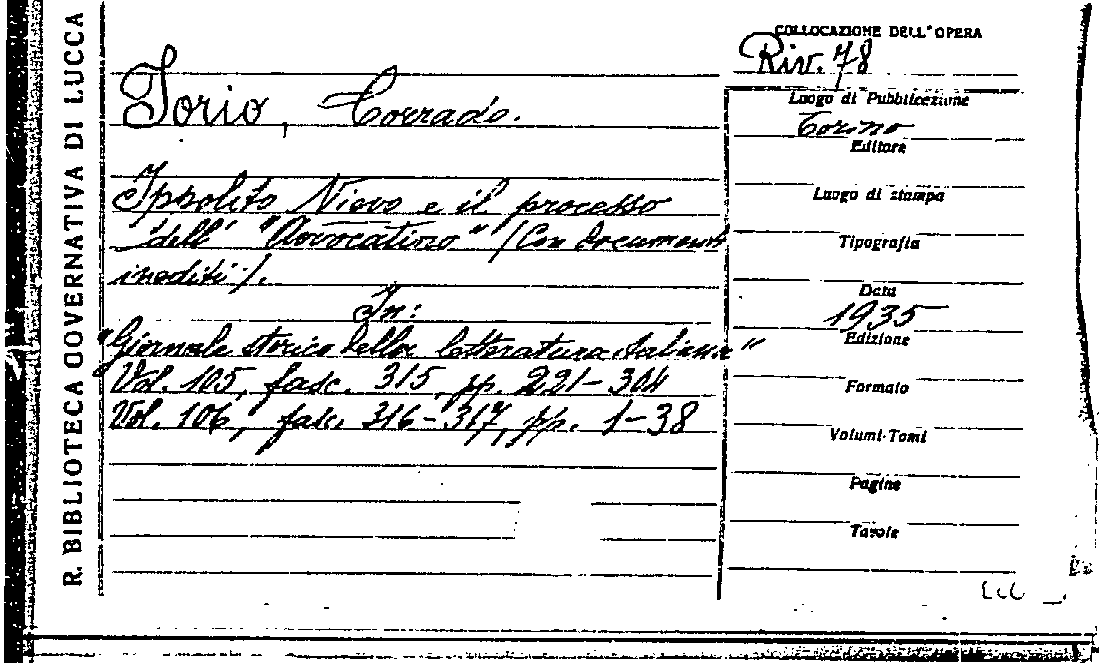 R. BIBLIOTECA GOVERNATIVA DI LUCCA
COLLOCAZIONE DELL'OPERA
Riv. 78
Jorio, Corrado.
Ippolito Nievo e il processo
dell' "Avvocatino" (Con documenti
inediti).
In:
"Giornale storico della letteratura italiana"
Vol. 105, fasc. 315, pp. 221-304
Vol. 106, fasc. 316-317, pp. 1-38
Luogo di Pubblicazione
Torino
Editore
Luogo di stampa
Tipografia
Data
1935
Edizione
Formato
Volumi-Tomi
Pagine
Tavole